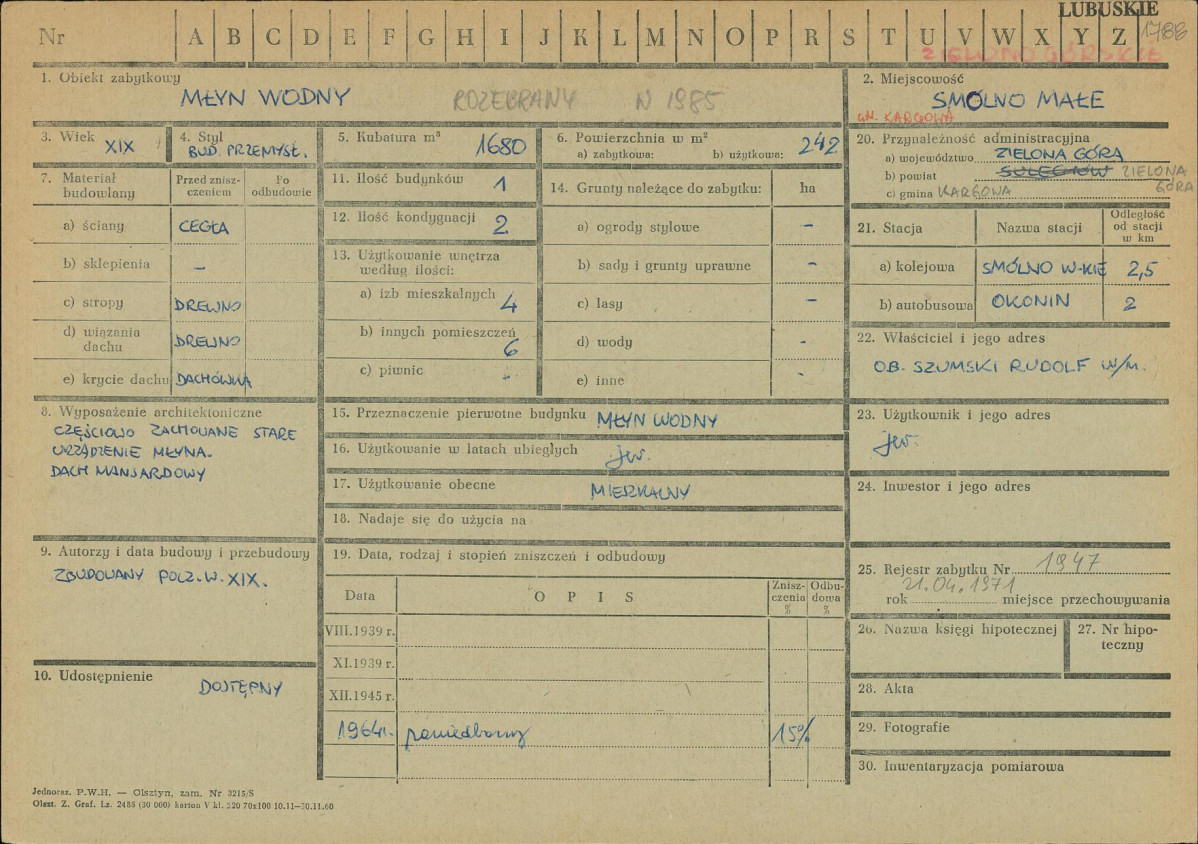 LUBUSKIE
1788
Nr A B C D E F G H I J K L M N O P R S T U V W X Y Z
ZIELONOGÓRSKIE
1. Obiekt zabytkowy
MŁYN WODNY ROZEBRANY W 1985
2. Miejscowość
SMOLNO MAŁE
GM. KARGOWA
3. Wiek XIX
4. Styl
BUD. PRZEMYSŁ.
5. Kubatura m³
1680
6. Powierzchnia w m²
a) zabytkowa: b) użytkowa: 242
20. Przynależność administracyjna
a) województwo ZIELONA GÓRA
b) powiat SULECHÓW ZIELONA GÓRA
c) gmina KARGOWA
7. Materiał budowlany
Przed zniszczeniem
Po odbudowie
a) ściany CEGŁA
b) sklepienia –
c) stropy DREWNO
d) wiązania dachu DREWNO
e) krycie dachu DACHÓWKA
11. Ilość budynków 1
12. Ilość kondygnacji 2
13. Użytkowanie wnętrza
według ilości:
a) izb mieszkalnych 4
b) innych pomieszczeń 6
c) piwnic -
14. Grunty należące do zabytku: ha
a) ogrody stylowe –
b) sady i grunty uprawne –
c) lasy –
d) wody -
e) inne -
21. Stacja Nazwa stacji Odległość od stacji w km
a) kolejowa SMÓLNO W-KIE 2,5
b) autobusowa OKONIN 2
22. Właściciel i jego adres
OB. SZUMSKI RUDOLF W/M.
8. Wyposażenie architektoniczne
CZĘŚCIOWO ZACHOWANE STARE
URZĄDZENIE MŁYNA.
DACH MANSARDOWY
15. Przeznaczenie pierwotne budynku MŁYN WODNY
16. Użytkowanie w latach ubiegłych jw.
17. Użytkowanie obecne MIESZKALNY
18. Nadaje się do użycia na
23. Użytkownik i jego adres
jw.
24. Inwestor i jego adres
9. Autorzy i data budowy i przebudowy
ZBUDOWANY POCZ. W. XIX.
19. Data, rodzaj i stopień zniszczeń i odbudowy
Data OPIS Zniszczenia % Odbudowa %
VIII.1939 r.
XI.1939 r.
XII.1945 r.
1964r. zaniedbany 15%
25. Rejestr zabytku Nr 1947
21.04.1971
rok miejsce przechowywania
26. Nazwa księgi hipotecznej
27. Nr hipoteczny
10. Udostępnienie
DOSTĘPNY
28. Akta
29. Fotografie
30. Inwentaryzacja pomiarowa
Jednoraz. P.W.H. — Olsztyn, zam. Nr 3215/S
Olszt. Z. Graf. Lz. 2485 (30 000) karton V kl. 220 70x100 10.11—30.11.60